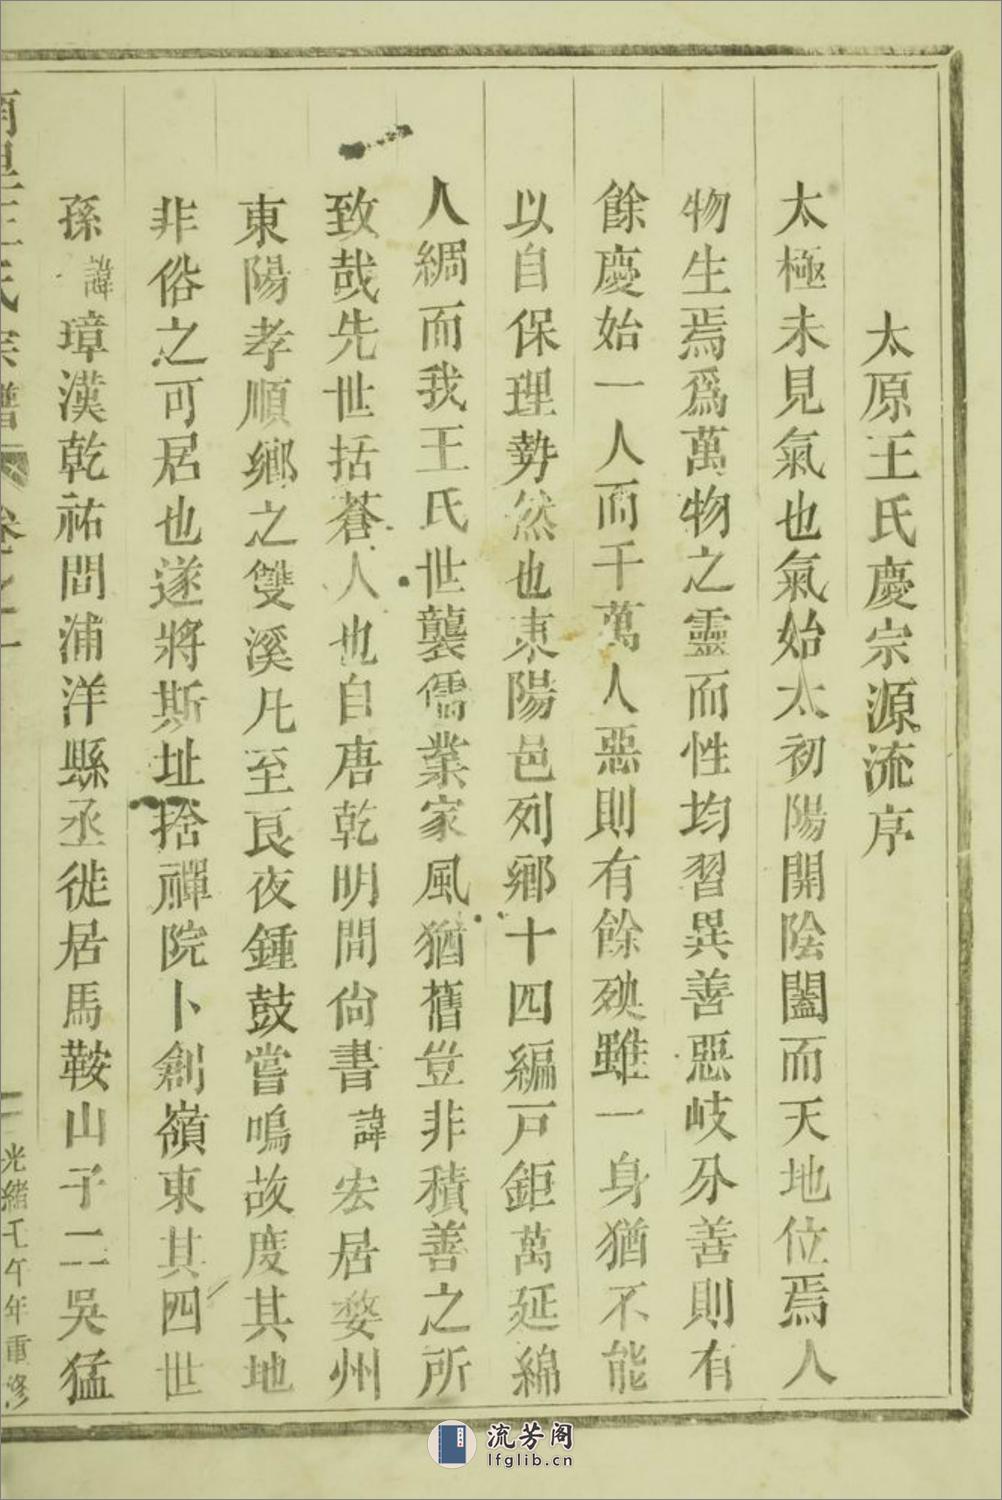 太原王氏慶宗源流序
太極未見氣也氣始太初陽開陰闔而天地位焉人
物生焉爲萬物之靈而性均習異善惡岐分善則有
餘慶始一人而千萬人惡則有餘殃雖一身猶不能
以自保理勢然也東陽邑列鄉十四編戸鉅萬延綿
人綢而我王氏世襲儒業家風猶舊豈非積善之所
致哉先世括蒼人也自唐乾明間尙書諱宏居婺州
東陽孝順鄉之雙溪凡至艮夜鍾鼓嘗鳴故度其地
非俗之可居也遂將斯址捨禪院卜創嶺東其四世
孫諱璋漢乾祐間浦洋縣丞徙居馬鞍山子二吳猛
王氏宗譜 卷之一 光緒壬午年重修
流芳阁
lfglib.cn